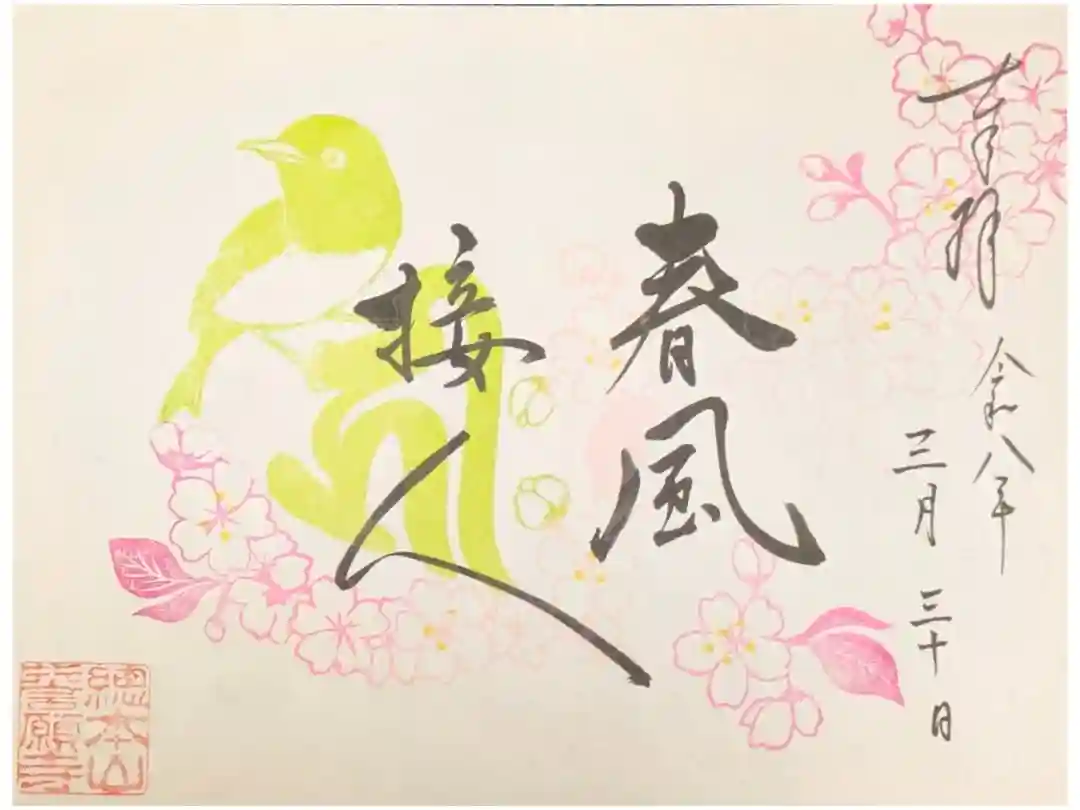 奉拝
令和八年
三月三十日
春風
接人
總本山
誓願寺